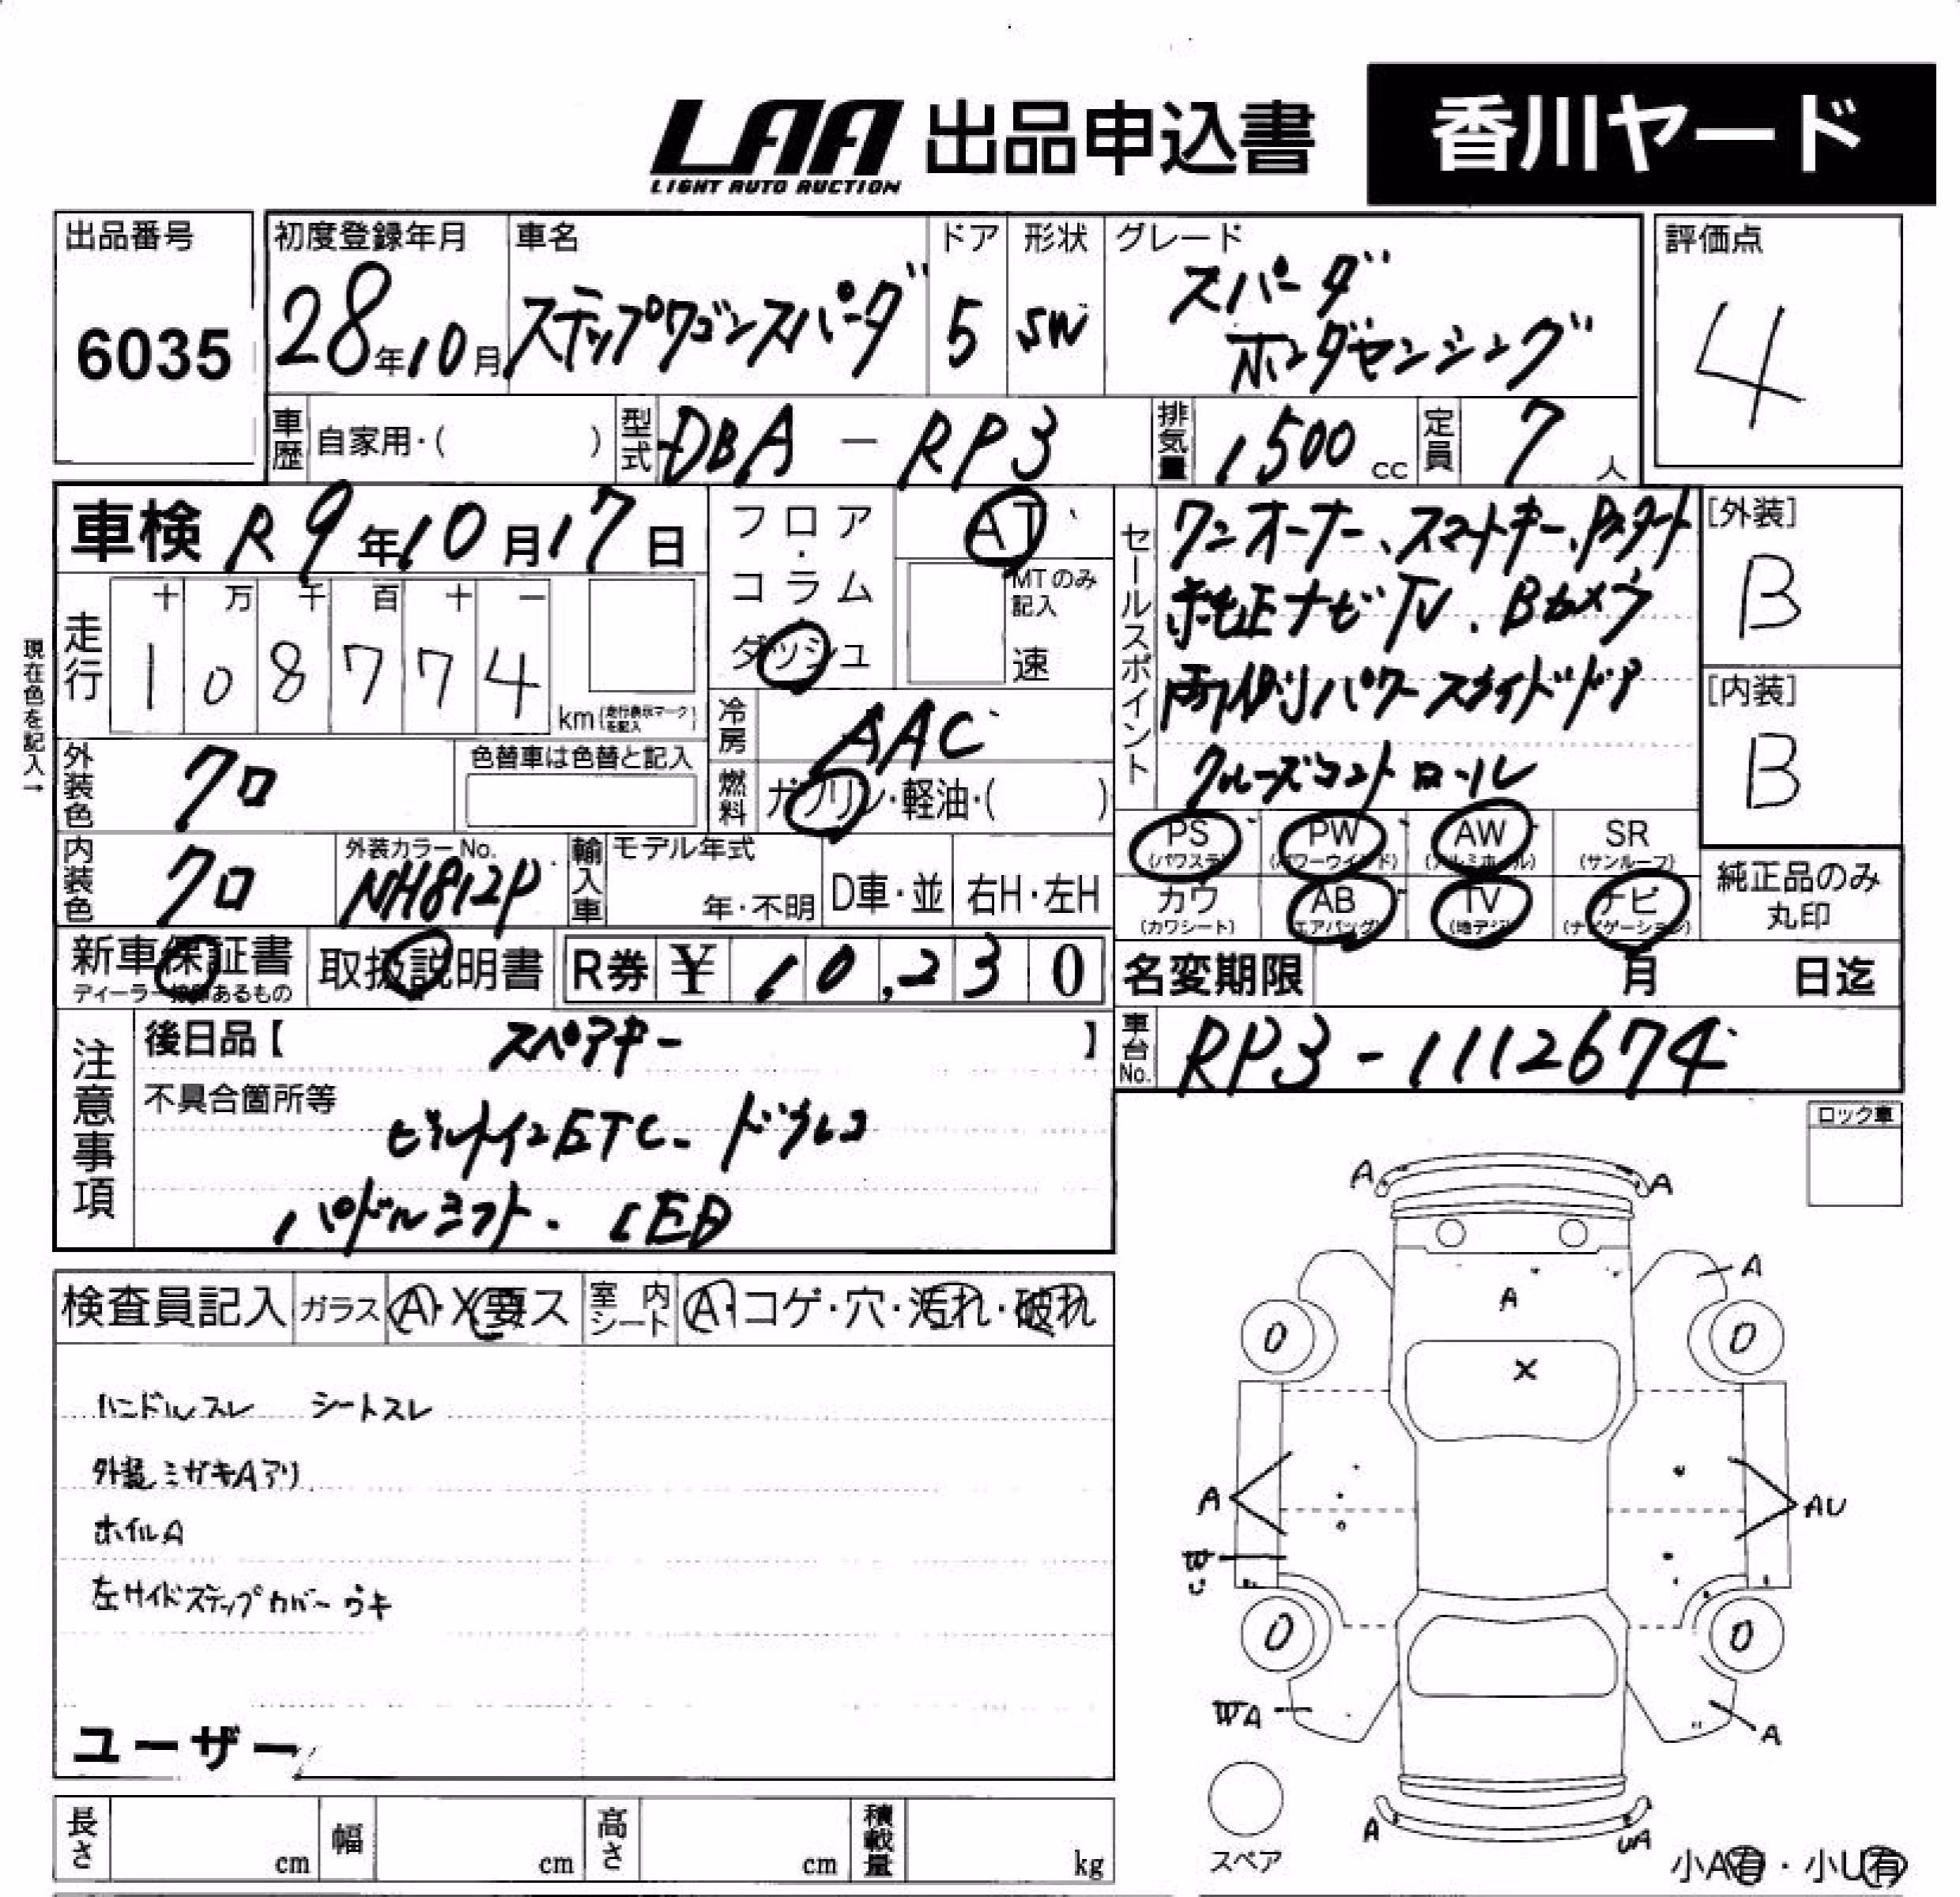 LAA 出品申込書 香川ヤード
LIGHT AUTO AUCTION
出品番号 初度登録年月 車名 ドア 形状 グレード 評価点
6035 28年10月 ステップワゴンスパーダ 5 SW スパーダ
ホンダセンシング 4
車歴 自家用・( ) 型式 DBA - RP3 排気量 1500 cc 定員 7 人
車検 R9年10月17日
フロア・コラム
ダッシュ
AT
MTのみ記入
速
セールスポイント
ワンオーナー、スマートキー、Pスタート
純正ナビTV、Bカメラ
両側パワースライドドア
クルーズコントロール
[外装]
B
[内装]
B
走行 十 万 千 百 十 一
1 0 8 7 7 4 km(走行表示マークを記入)
現在色を記入→
冷房 AAC
外装色 クロ 色替車は色替と記入
燃料 ガソリン・軽油・( )
PS (パワステ) PW (パワーウインド) AW (アルミホイル) SR (サンルーフ)
カワ (カワシート) AB (エアバッグ) TV (地デジ) ナビ (ナビゲーション)
純正品のみ
丸印
内装色 クロ 外装カラーNo. NH812P 輸入車 モデル年式 年・不明 D車・並 右H・左H
新車保証書 取扱説明書 R券 ¥ 10,230
ディーラー捺印あるもの
名変期限 月 日迄
車台No. RP3-1112674
注意事項
後日品【 スペアキー 】
不具合箇所等
ビルトインETC、ドラレコ
パドルシフト、LED
ロック車
検査員記入 ガラス A・X要ス 室内シート A・コゲ・穴・汚れ・破れ
ハンドルスレ シートスレ
外装ミガキAアリ
ホイルA
左サイドステップカバーウキ
ユーザー
A A
A
A
0 0
X
A AU
W
U
0 0
WA A
A UA
スペア
小A有・小U有
長さ cm 幅 cm 高さ cm 積載量 kg